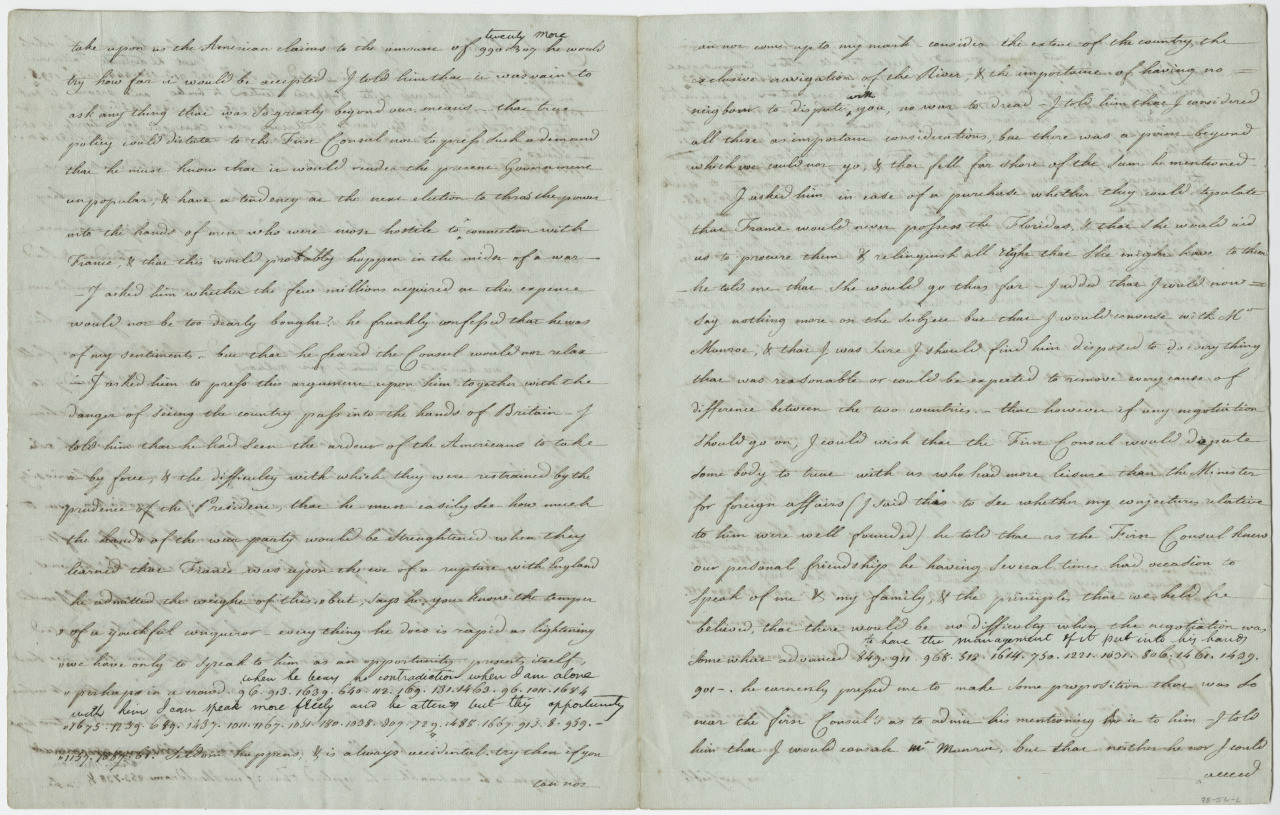 twenty more
take upon us the American claims to the amount of he would
try how far it would be accepted – I told him that it was vain to
ask any thing that was so greatly beyond our means – that true
policy could dictate to the First Consul not to press such a demand
that he must know that it would render the present Government
unpopular, & have a tendency at the next election to throw the power
into the hands of men who were most hostile to a connection with
France, & that this would probably happen in the midst of a war –
– I asked him whether the few millions acquired at this expence
would not be too dearly bought? he frankly confessed that he was
of my sentiments – but that he feared the Consul would not relax
– I asked him to press this argument upon him together with the
danger of seeing the country pass into the hands of Britain – I
told him that he had seen the ardour of the Americans to take
it by force, & the difficulty with which they were restrained by the
prudence of the President, that he must easily see how much
the hands of the war party would be straightened when they
learned that France was upon the eve of a rupture with England
he admitted the weight of this, but, says he, you know the temper
of a youthful conqueror – every thing he does is rapid as lightening
we have only to speak to him as an opportunity presents itself,
when he bears no contradiction when I am alone
perhaps in a crowd 96. 913. 1639. 640. 112. 169. 131. 1463. 96. 1011. 1684
with him I can speak more freely and he attends but this opportunity
1675. 1739. 689. 1437. 1011. 1167. 1031. 180. 1038. 207. 729. 1485. 1667. 913. 8. 959. –
1157. 1087. 61. Seldom happens, & is always accidental. try then if you
can not
can not come up to my mark consider the extent of the country, the
exclusive navigation of the River, & the importance of having no =
with
neigbours to dispute you, no war to dread – I told him that I considered
all these as important considerations, but there was a point beyond
which we could not go, & that fell far short of the sum he mentioned –
I asked him in case of a purchase whether they would stipulate
that France would never possess the Floridas, & that she would aid
us to procure them & relinquish all right that she might have to them
he told me that she would go thus far – I added that I would now =
say nothing more on the subject but that I would converse with Mr
Munroe, & that I was sure I should find him disposed to do every thing
that was reasonable or could be expected to remove every cause of
difference between the two countries. – that however if any negotiation
should go on, I could wish that the First Consul would depute
some body to treat with us who had more leisure than the Minister
for foreign affairs (I said this to see whether my conjectures relative
to him were well founded) he told that as the First Consul knew
our personal friendship he having several times had occasion to
speak of me & my family, & the principles that we held he
believed, that there would be no difficulty when the negotiation was
to have the management of it put into his hands
somewhat advanced 849. 911. 968. 513. 1614. 750. 1221. 1031. 806. 1461. 1439.
901 –. he earnestly pressed me to make some proposition that was so
near the first Consul's as to admit his mentioning it to him – I told
him that I would consult Mr Munroe, but that neither he nor I could
accced